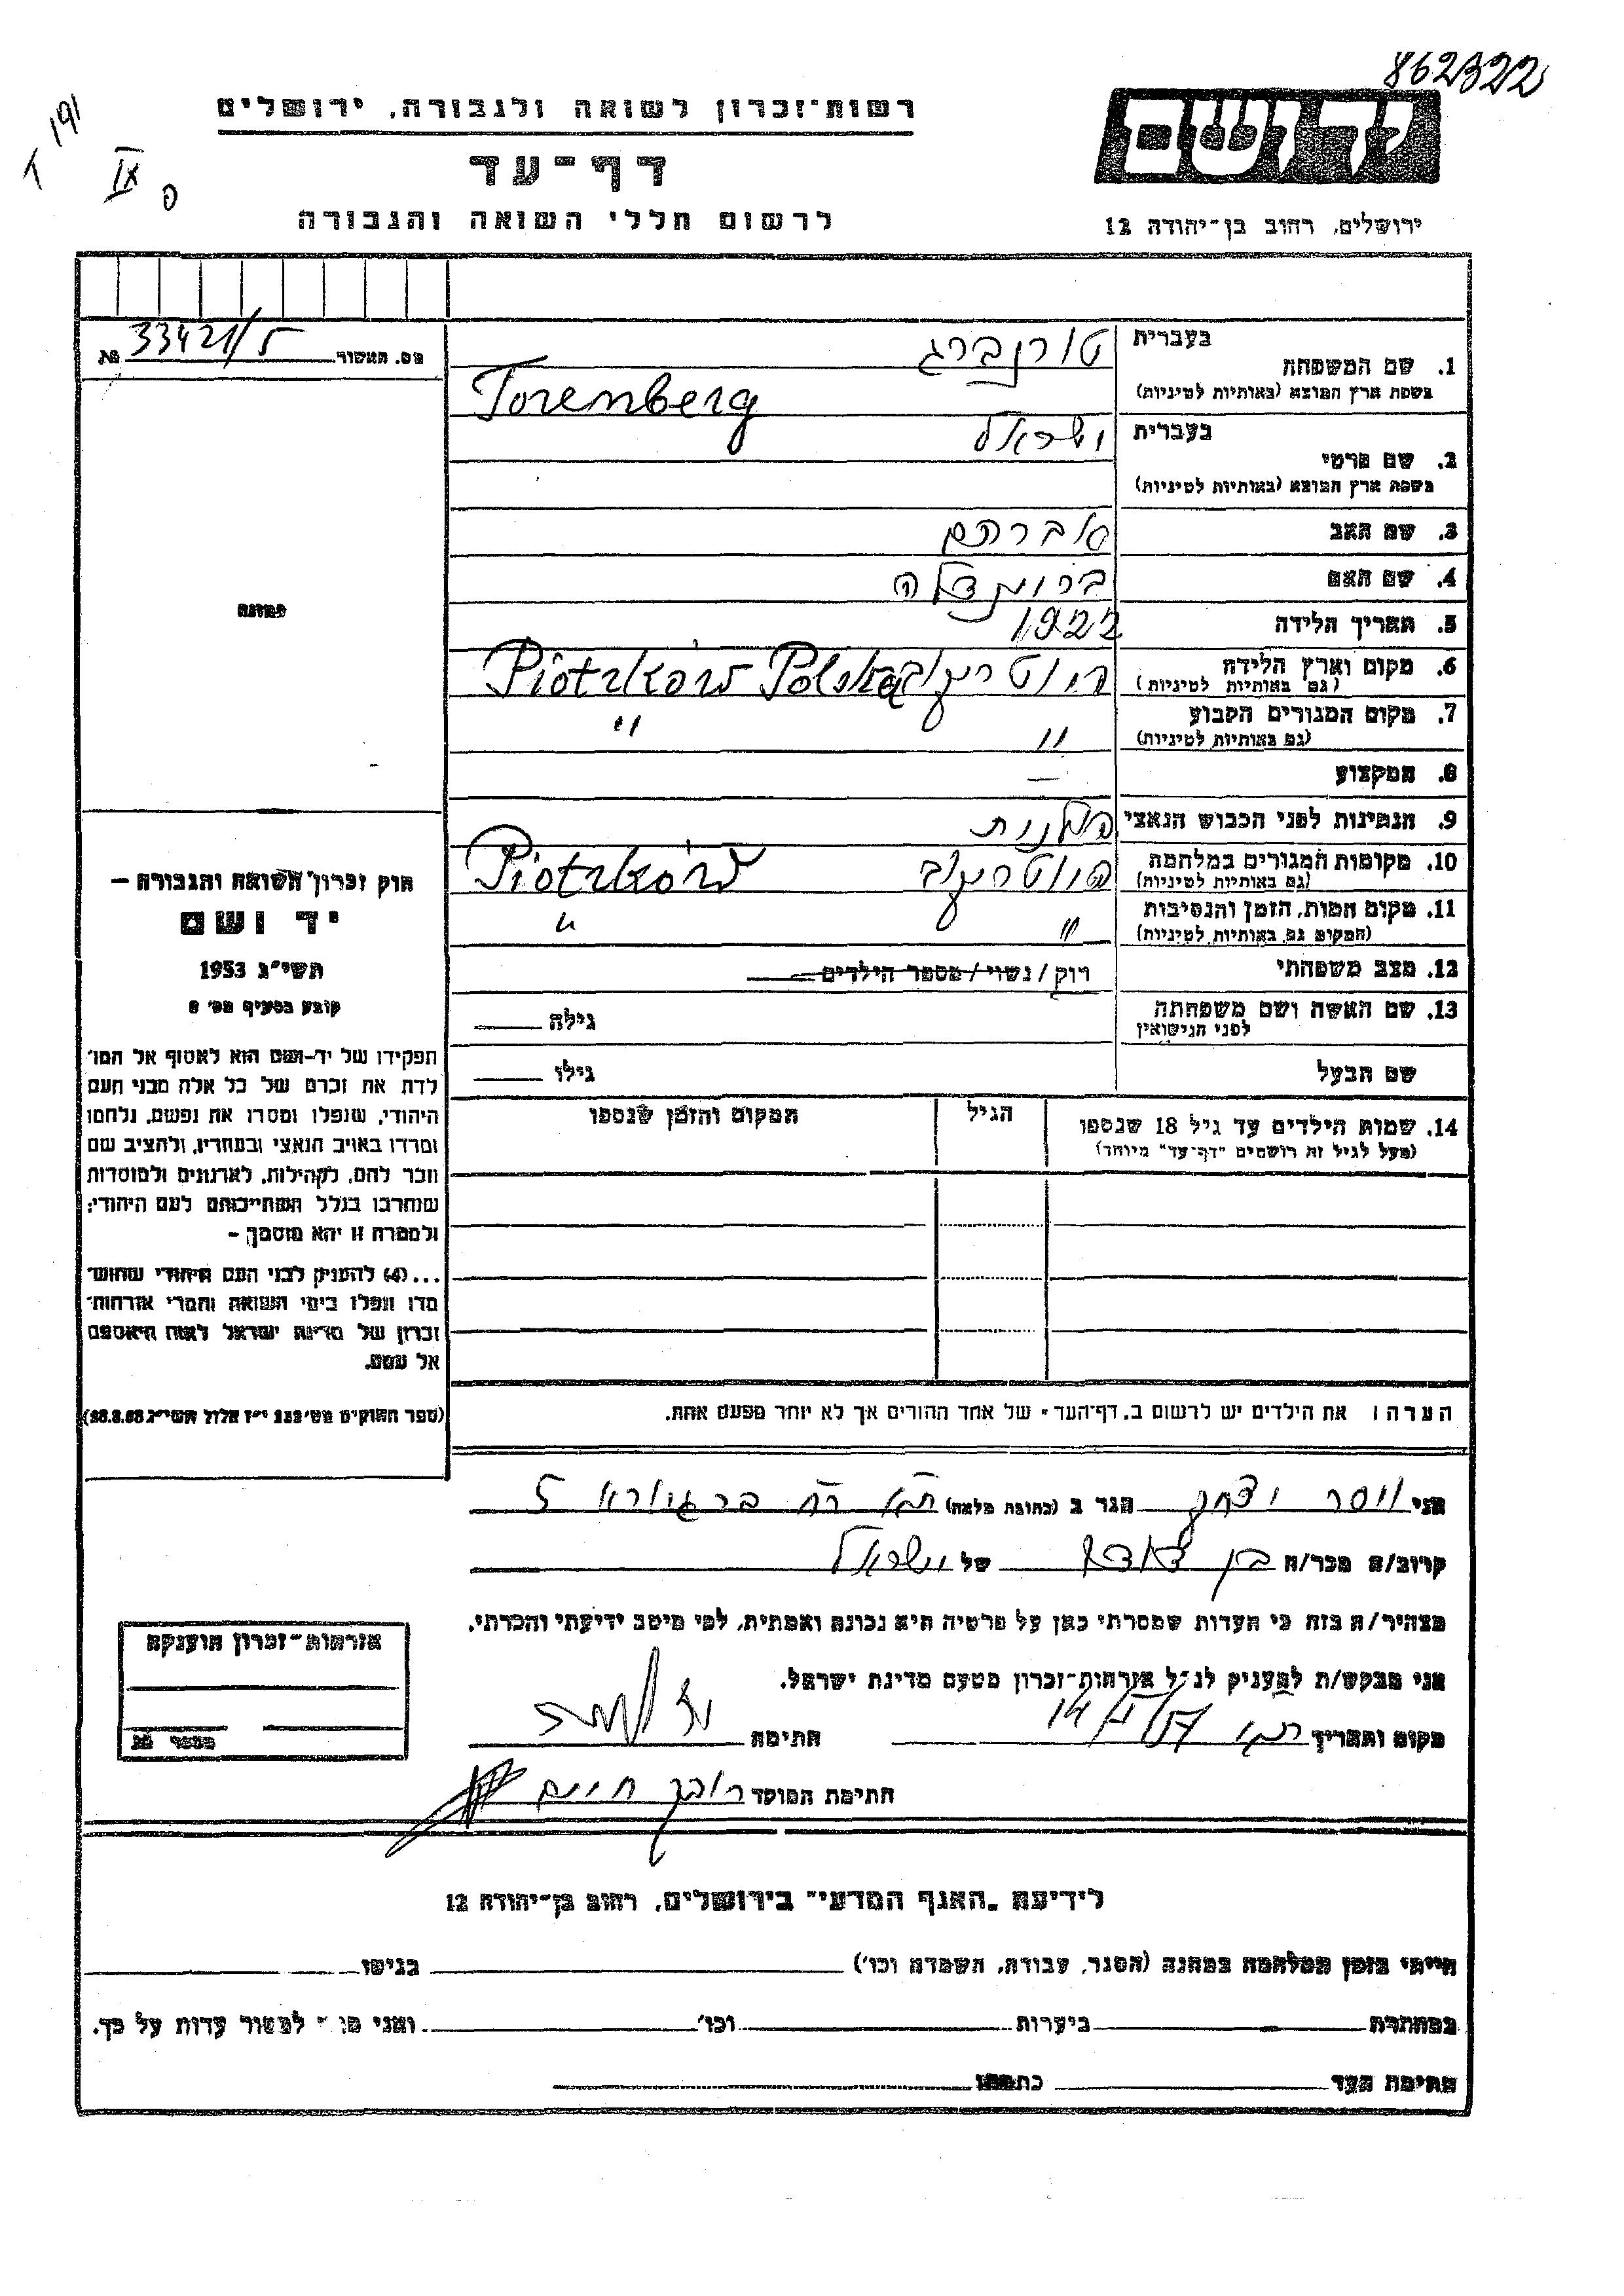 862322
רשות־זכרון לשואה ולגבורה, ירושלים
דף־עד
לרשום חללי השואה והגבורה
ידושם
ירושלים, רחוב בן־יהודה 12
T 191
IX
מס. האשור 33421/5 №
בעברית
1. שם המשפחה טורנברג
בשפת ארץ המוצא (באותיות לטיניות) Torenberg
בעברית
2. שם פרטי ישראל
בשפת ארץ המוצא (באותיות לטיניות)
3. שם האב אברהם
4. שם האם
5. תאריך הלידה 1922
6. מקום וארץ הלידה פיוטרקוב Piotrków Polska
(גם באותיות לטיניות)
7. מקום המגורים הקבוע " "
(גם באותיות לטיניות)
8. המקצוע —
9. הנתינות לפני הכבוש הנאצי פולנית
10. מקומות המגורים במלחמה פיוטרקוב Piotrków
(גם באותיות לטיניות)
11. מקום המות, הזמן והנסיבות " "
(המקום גם באותיות לטיניות)
12. מצב משפחתי רווק / נשוי / מספר הילדים
13. שם האשה ושם משפחתה גילה
לפני הנישואין
שם הבעל גילו
14. שמות הילדים עד גיל 18 שנספו הגיל המקום והזמן שנספו
(מעל לגיל זה רושמים "דף־עד" מיוחד)
תמונה
חוק זכרון השואה והגבורה —
יד ושם
תשי״ג 1953
קובע בסעיף מס׳ 2
תפקידו של יד־ושם הוא לאסוף אל המו־
לדת את זכרם של כל אלה מבני העם
היהודי, שנפלו ומסרו את נפשם, נלחמו
ומרדו באויב הנאצי ובעוזריו, ולהציב שם
וזכר להם, לקהילות, לארגונים ולמוסדות
שנחרבו בגלל השתייכותם לעם היהודי;
ולמטרה זו יהא מוסמך —
...(4) להעניק לבני העם היהודי שהוש־
מדו ונפלו בימי השואה והמרי אזרחות־
זכרון של מדינת ישראל לאות היאספם
אל עמם.
(ספר החוקים מס׳ 132 י״ז אלול תשי״ג 28.8.53)
הערה: את הילדים יש לרשום ב„דף־העד" של אחד ההורים אך לא יותר מפעם אחת.
אני יצחק הגר ב (כתובת מלאה) בר גיורא 5
קרוב/ה מכר/ה בן דודו של ישראל
מצהיר/ה בזה כי העדות שמסרתי כאן על פרטיה היא נכונה ואמתית, לפי מיטב ידיעתי והכרתי.
אני מבקש/ת להעניק לנ״ל אזרחות־זכרון מטעם מדינת ישראל.
מקום ותאריך 14/ /57 חתימה
חתימת המוסד חיים
אזרחות־זכרון הוענקה
מספר №
לידיעת „האגף המדעי" בירושלים, רחוב בן־יהודה 12
הייתי בזמן המלחמה במחנה (הסגר, עבודה, השמדה וכו׳) בגיטו
במחתרת ביערות וכו׳ ואני מו למסור עדות על כך.
חתימת העד כתבתו